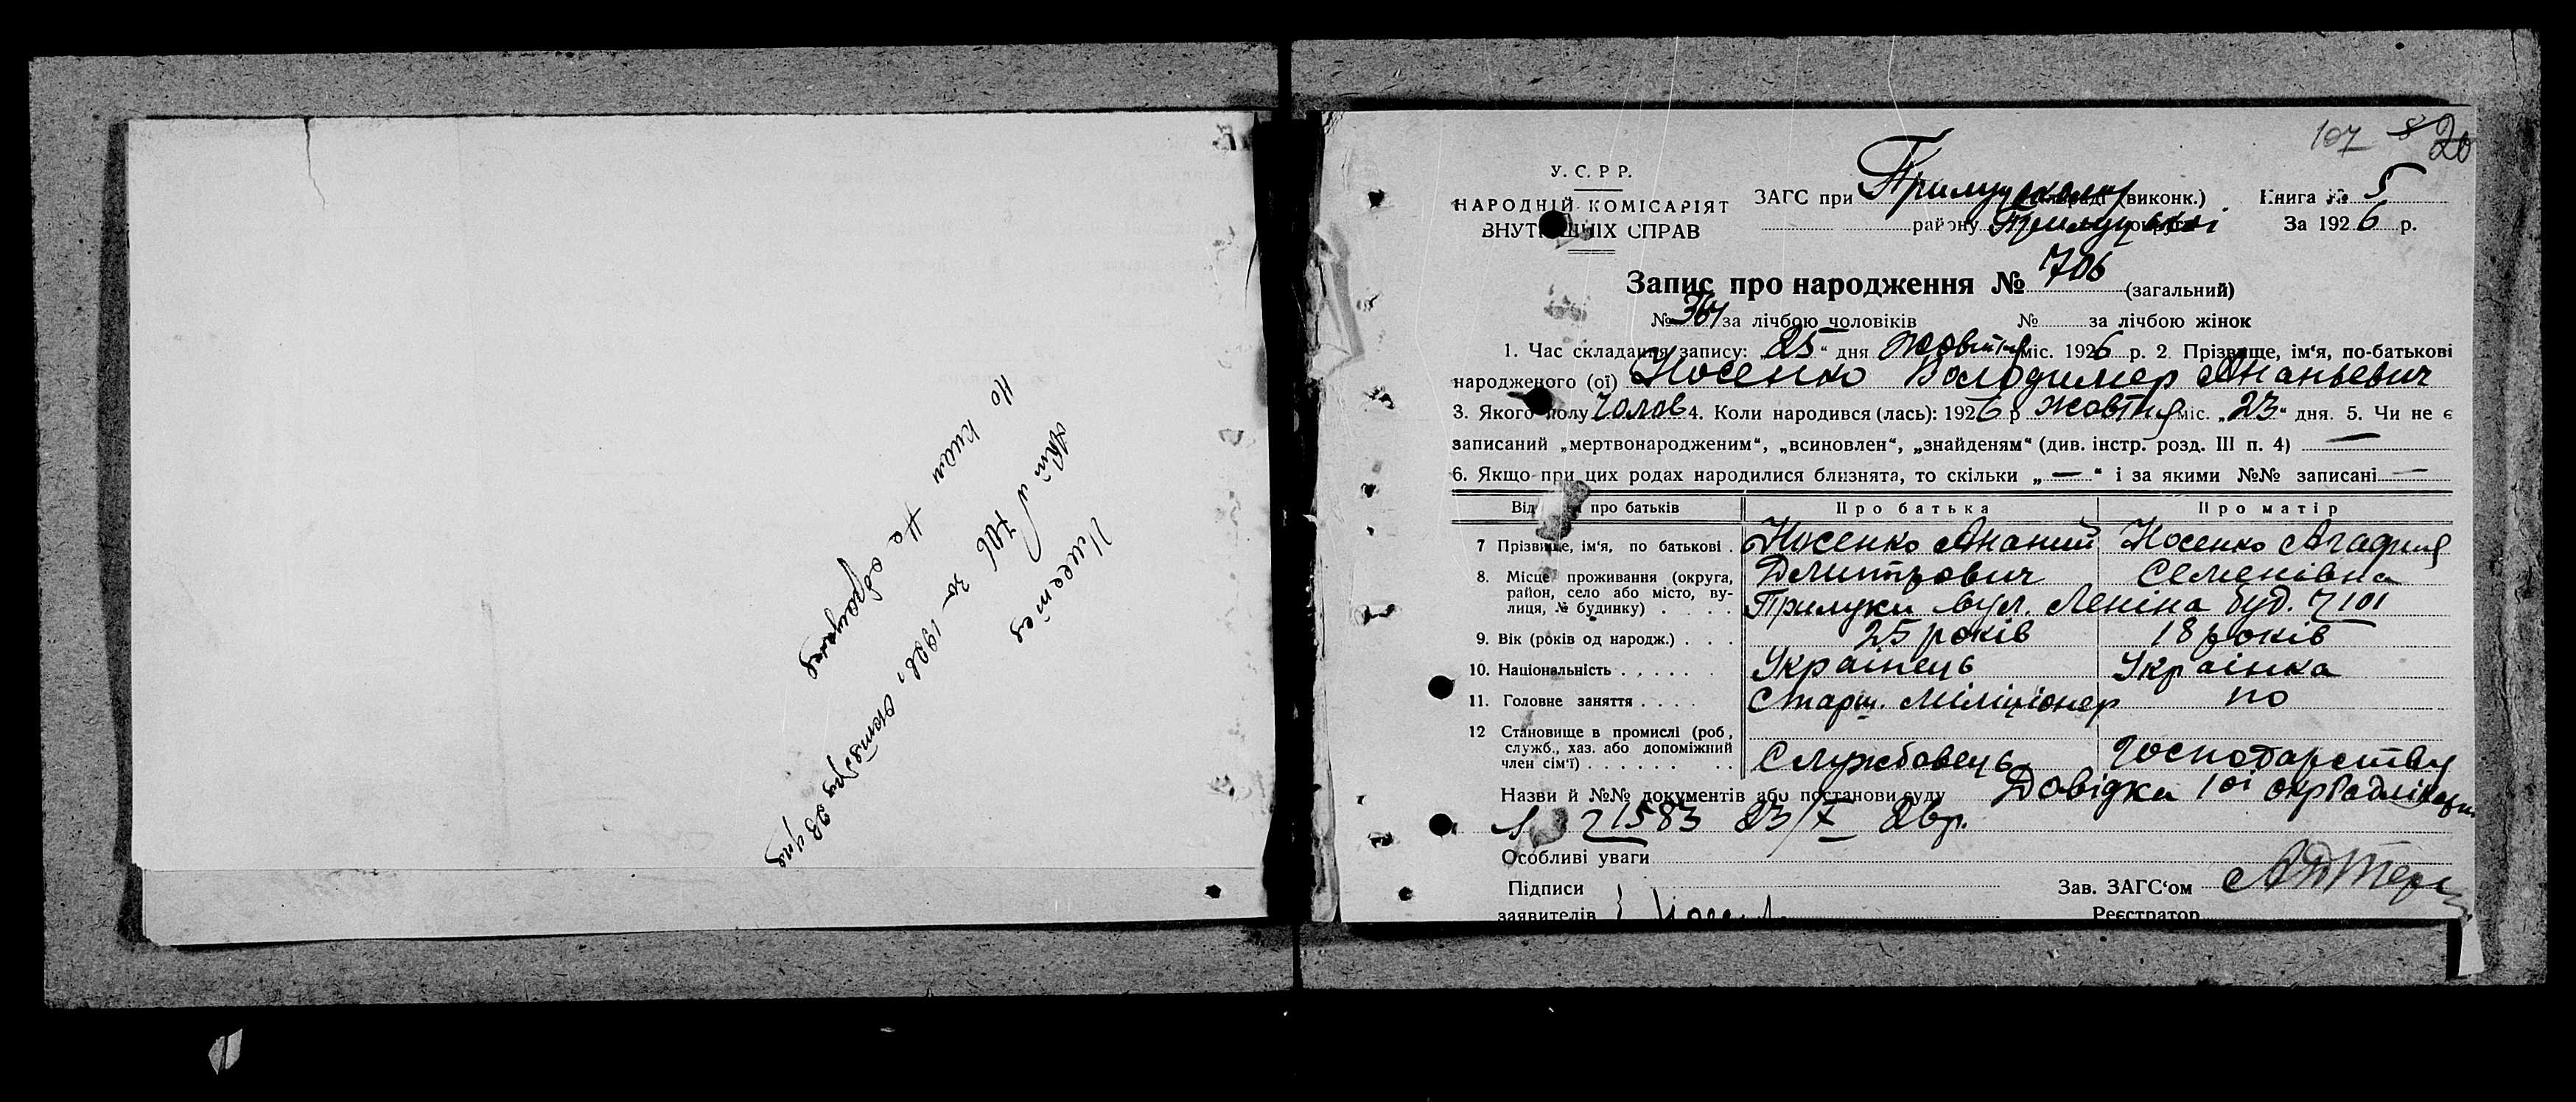 Имеетися
Акт и № 706 за 1926 г октября 23 дня
По книги
Не обращатся
107 8 20
У. С. Р Р.
НАРОДНІЙ КОМІСАРІЯТ
ВНУТРІШНІХ СПРАВ
ЗАГС при Прилуцькому (виконк.)
району Прилуцької округи
Книга № 5
За 1926 р.
Запис про народження № 706 (загальний)
№ за лічбою чоловіків № за лічбою жінок
1. Час складання запису: „25“ дня Жовтня міс. 1926 р. 2 Прізвище, ім‘я, по-батькові
народженого (ої) Носенко Володимер Ананьевич
3. Якого полу Чолов 4. Коли народився (лась): 1926 р жовтня міс. „23“ дня. 5. Чи не є
записаний „мертвонародженим“, „всиновлен“, „знайденям“ (див. інстр. розд. III п. 4) —
6. Якщо при цих родах народилися близнята, то скільки „—“ і за якими №№ записані —
про батьків Про батька Про матір
7 Прізвище, ім‘я, по батькові . Носенко Ананий Носенко Агафия
8. Місце проживання (округа, Дмитрович Семенівна
район, село або місто, ву-
лиця, № будинку) . . . . Прилуки вул. Леніна буд. 101
9. Вік (років од народж.) . . . 25 років 18 років
10. Національність . . . . . . Українець Українка
11. Головне заняття . . . . Старш. Міліціонер по
12 Становище в промислі (роб,
служб., хаз. або допоміжний
член сім‘ї) . . . . . . . . Службовець господарству
Назви й №№ документів або постанови суду Довідка 1оі
1583 23/X 26р.
Особливі уваги
Підписи
заявителів
Зав. ЗАГС‘ом
Реєстратор